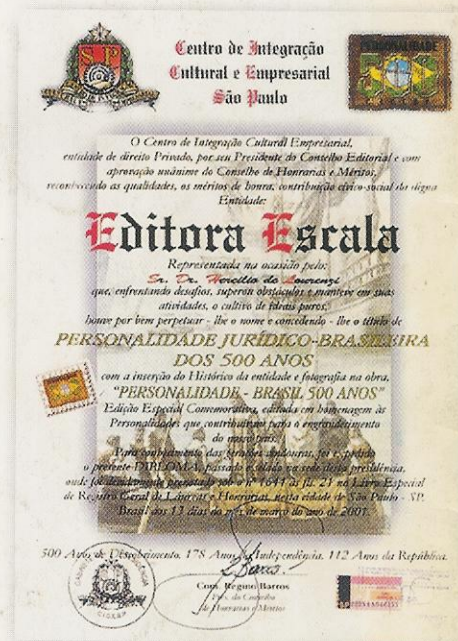 S P
PERSONALIDADE
500
Centro de Integração
Cultural e Empresarial
São Paulo
O Centro de Integração Cultural Empresarial,
entidade de direito Privado, por seu Presidente do Conselho Editorial e com
aprovação unânime do Conselho de Honrarias e Méritos,
reconhecendo as qualidades, os méritos de honra, contribuição cívico-social da digna
Entidade:
Editora Escala
Representada na ocasião pelo:
Sr. Dr. Hercilio de Lourenzi
que, enfrentando desafios, superou obstáculos e manteve em suas
atividades, o cultivo de ideais puros,
houve por bem perpetuar - lhe o nome e concedendo - lhe o título de
PERSONALIDADE JURÍDICO-BRASILEIRA
DOS 500 ANOS
com a inserção do Histórico da entidade e fotografia na obra,
"PERSONALIDADE - BRASIL 500 ANOS"
Edição Especial Comemorativa, editada em homenagem às
Personalidades que contribuíram para o engrandecimento
do nosso país.
Para conhecimento das gerações vindouras, foi expedido
o presente DIPLOMA, passado e selado na sede desta presidência,
onde foi devidamente prenotado sob o nº 1644 às fls. 21 no Livro Especial
de Registro Geral de Láureas e Honrarias, nesta cidade de São Paulo - SP.
Brasil aos 13 dias do mês de março do ano de 2001.
500 Anos de Descobrimento, 178 Anos da Independência, 112 Anos da República.
Com. Regino Barros
Pres. do Conselho
de Honrarias e Méritos
CICESP